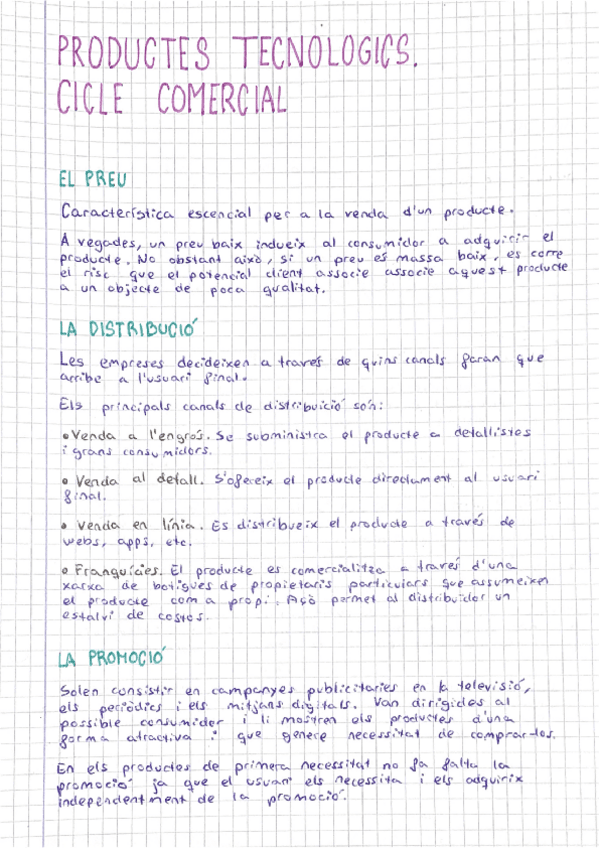 PRODUCTES TECNOLOGICS.
CICLE COMERCIAL
EL PREU
Característica escencial per a la venda d'un producte.
A vegades, un preu baix indueix al consumidor a adquirir el
producte. No obstant això, si un preu és massa baix, es corre
el risc que el potencial client associe associe aquest producte
a un objecte de poca qualitat.
LA DISTRIBUCIÓ
Les empreses decideixen a través de quins canals faran que
arribe a l'usuari final.
Els principals canals de distribuició són:
• Venda a l'engròs. Se subministra el producte a detallistes
i grans consumidors.
• Venda al detall. S'ofereix el producte directament al usuari
final.
• Venda en línia. Es distribueix el producte a través de
webs, apps, etc.
• Franquícies. El producte es comercialitza a través d'una
xarxa de botigues de propietaris particulars que assumeixen
el producte com a propi. Açò permet al distribuïdor un
estalvi de costos.
LA PROMOCIÓ
Solen consistir en campanyes publicitaries en la televisió,
els periòdics i els mitjans digitals. Van dirigides al
possible consumidor i li mostren els productes d'una
forma atractiva i que genere necessitat de comprar-los.
En els productes de primera necessitat no fa falta la
promoció ja que el usuari els necessita i els adquirix
independentment de la promoció.